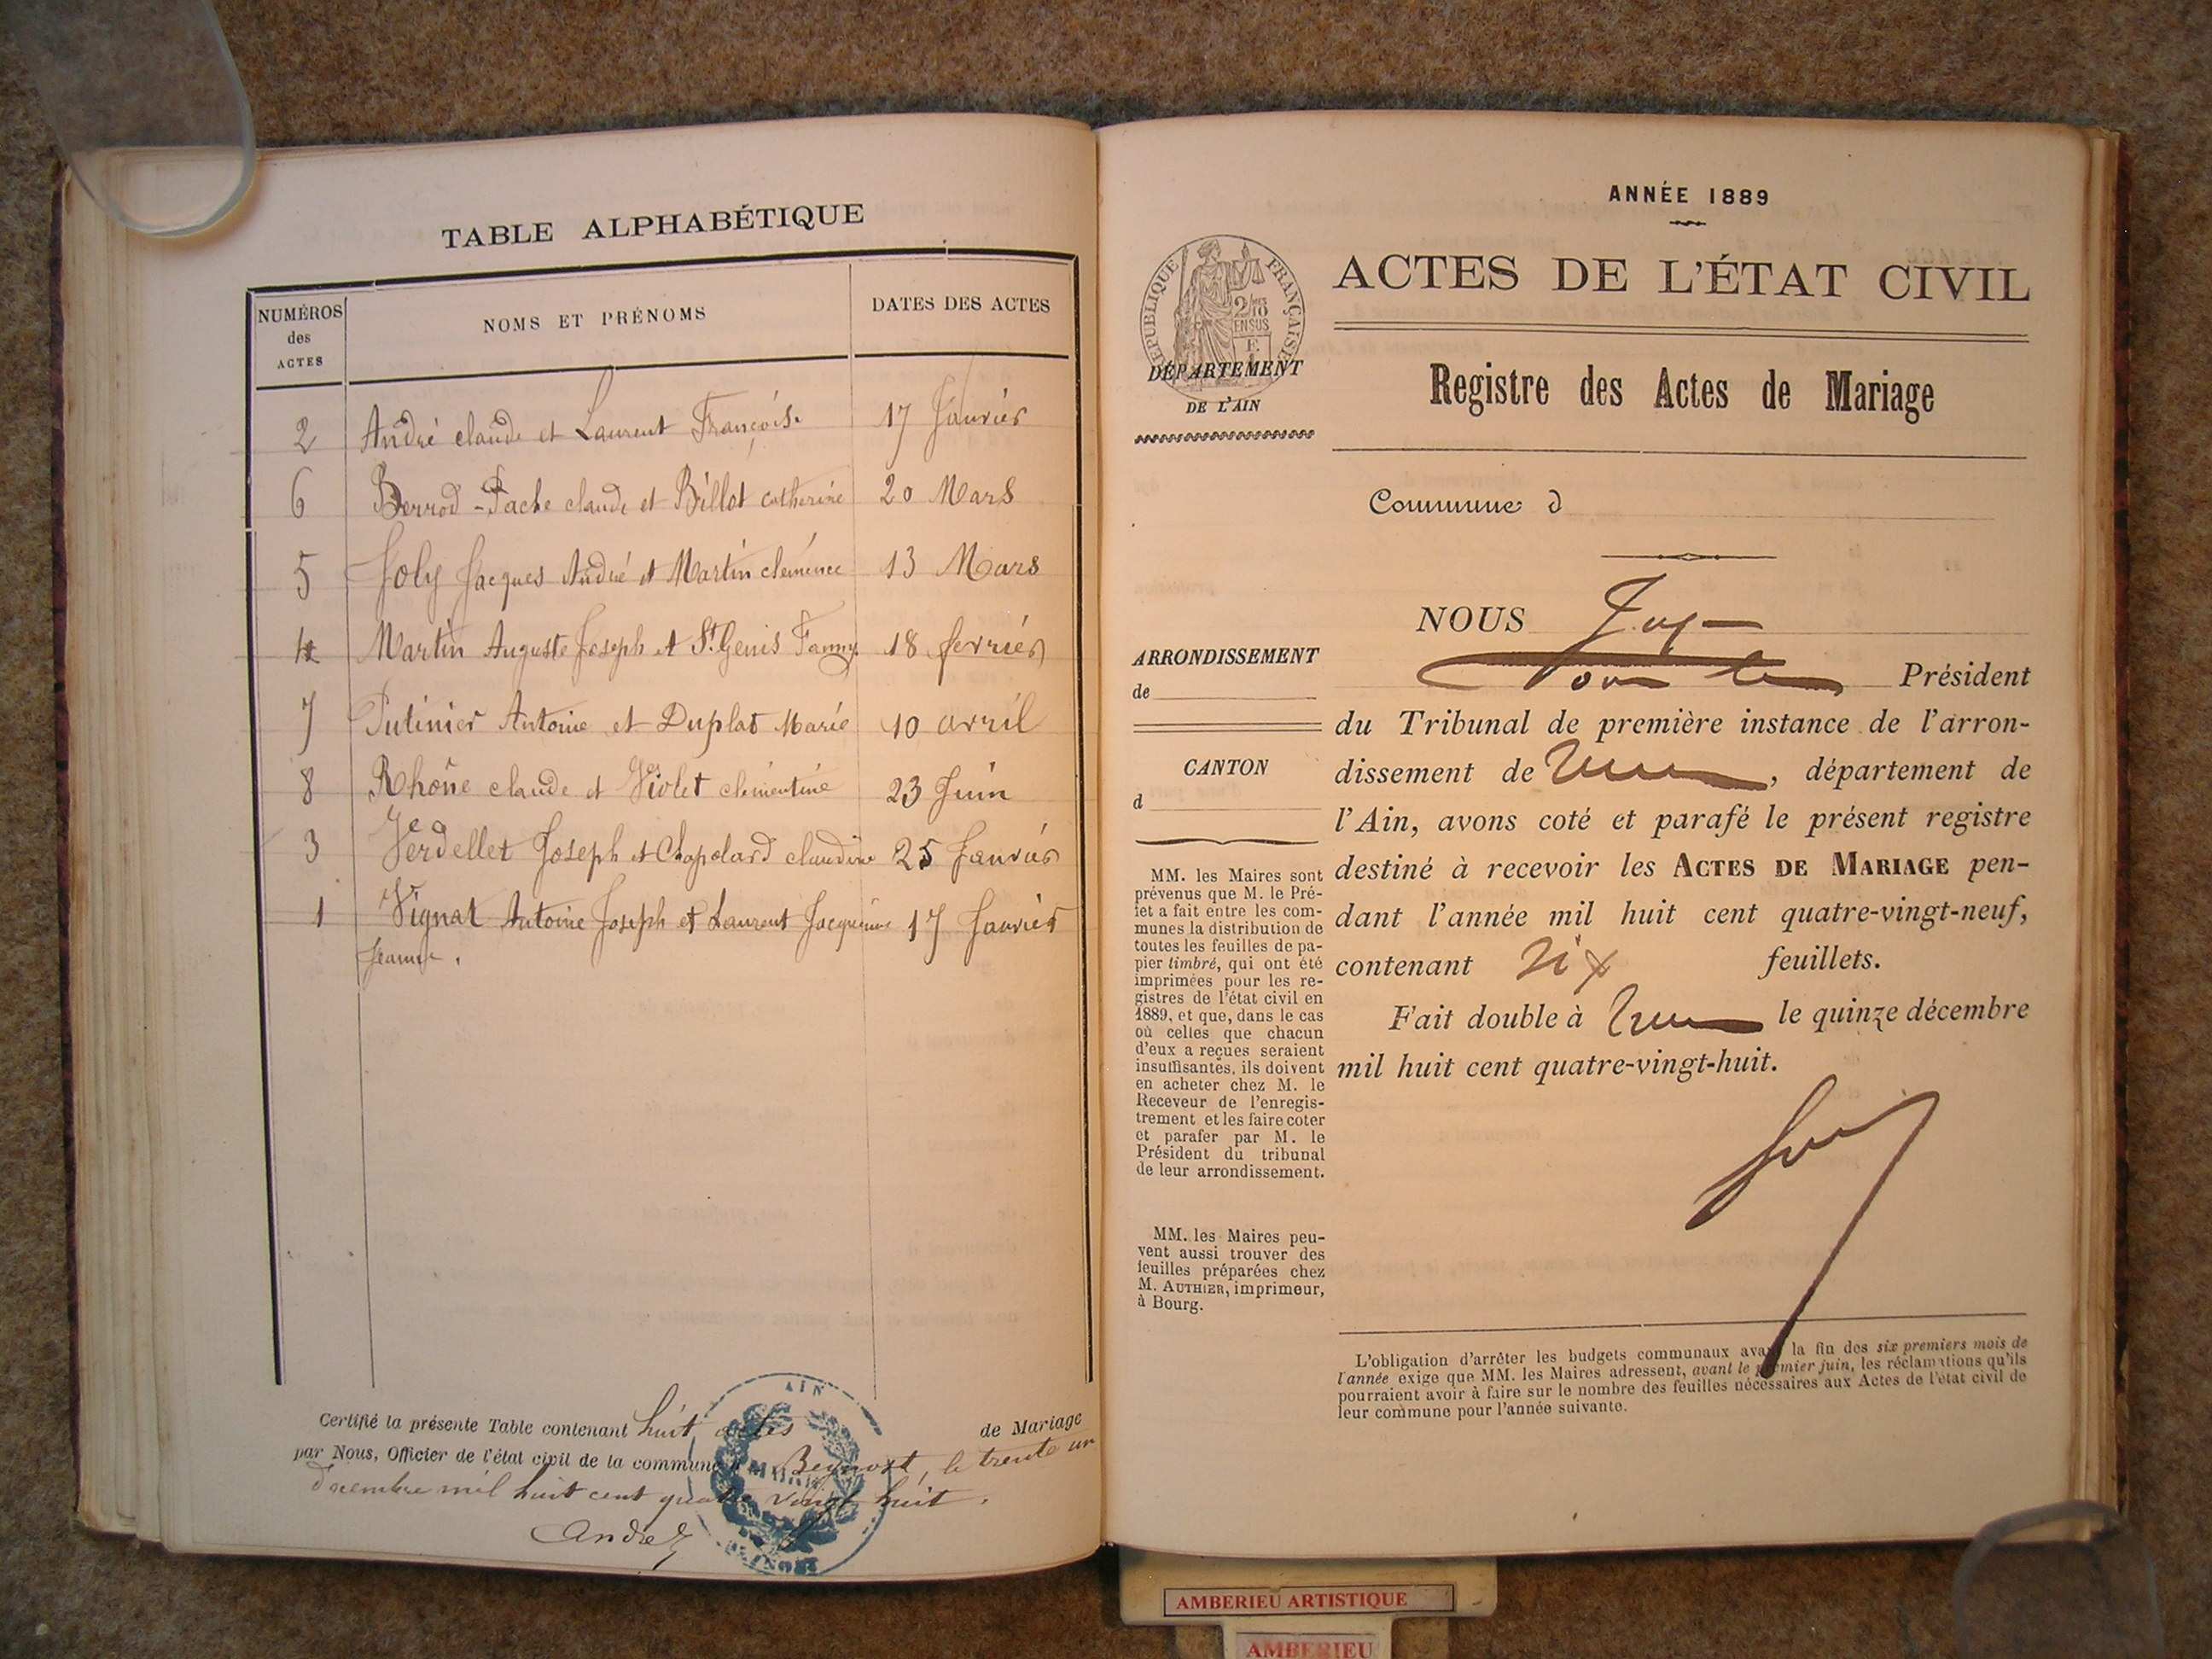 TABLE ALPHABÉTIQUE
NUMÉROS des ACTES
NOMS ET PRÉNOMS
DATES DES ACTES
2 André claude et Laurent Françoise 17 Janvier
6 Berrod-Pache claude et Billot catherine 20 Mars
5 Joly Jacques André et Martin clémence 13 Mars
4 Martin Auguste Joseph et St Genis Fanny 18 fevrier
7 Putinier Antoine et Duplat Marie 10 avril
8 Rhône claude et Violet clémentine 23 Juin
3 Verdellet Joseph et Chapolard claudine 25 Janvier
1 Vignat Antoine Joseph et Laurent Jacqueline 17 Janvier
Jeanne.
Certifié la présente Table contenant huit actes de Mariage
par Nous, Officier de l'état civil de la commune Beynost, le trente un
décembre mil huit cent quatre vingt huit.
André
AIN
ANNÉE 1889
ACTES DE L'ÉTAT CIVIL
Registre des Actes de Mariage
RÉPUBLIQUE FRANÇAISE
DÉPARTEMENT
DE L'AIN
Commune d
NOUS
Président
du Tribunal de première instance de l'arron-
dissement de , département de
l'Ain, avons coté et parafé le présent registre
destiné à recevoir les ACTES DE MARIAGE pen-
dant l'année mil huit cent quatre-vingt-neuf,
contenant six feuillets.
Fait double à le quinze décembre
mil huit cent quatre-vingt-huit.
ARRONDISSEMENT
de
CANTON
d
MM. les Maires sont
prévenus que M. le Pré-
fet a fait entre les com-
munes la distribution de
toutes les feuilles de pa-
pier timbré, qui ont été
imprimées pour les re-
gistres de l'état civil en
1889, et que, dans le cas
où celles que chacun
d'eux a reçues seraient
insuffisantes, ils doivent
en acheter chez M. le
Receveur de l'enregis-
trement et les faire coter
et parafer par M. le
Président du tribunal
de leur arrondissement.
MM. les Maires peu-
vent aussi trouver des
feuilles préparées chez
M. AUTHIER, imprimeur,
à Bourg.
L'obligation d'arrêter les budgets communaux avant la fin des six premiers mois de
l'année exige que MM. les Maires adressent, avant le premier juin, les réclamations qu'ils
pourraient avoir à faire sur le nombre des feuilles nécessaires aux Actes de l'état civil de
leur commune pour l'année suivante.
AMBERIEU ARTISTIQUE
AMBERIEU